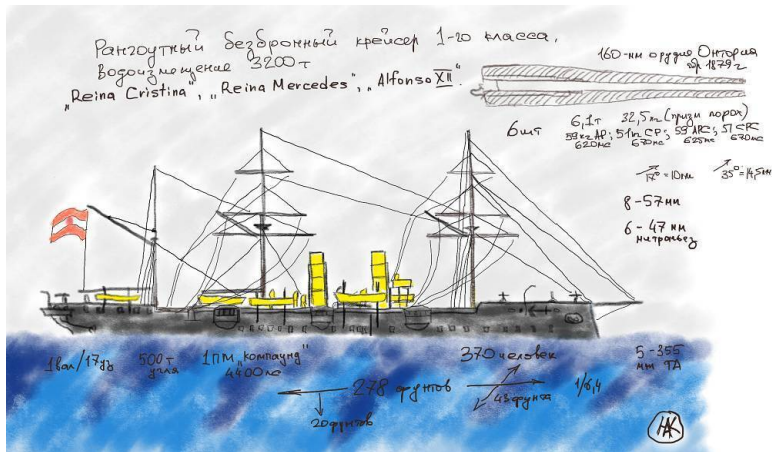 Рангоутный безбронный крейсер 1-го класса.
Водоизмещение 3200 т
"Reina Cristina", "Reina Mercedes", "Alfonso XII".
160-мм орудие Онтория
обр 1879 г
6 шт
6,1 т 32,5 кг (призм порох)
59 кг AP; 51 кг CP; 59 APC; 51 CPC
620 мс 670 мс 625 мс 670 мс
17° = 10 км 35° = 14,5 км
8-57 мм
6-47 мм
митральез
1 вал/17 уз
500 т
угля
1 ПМ "компаунд"
4400 лс
370 человек
5-355
мм ТА
278 футов
1/6,4
43 фута
20 футов
НАК